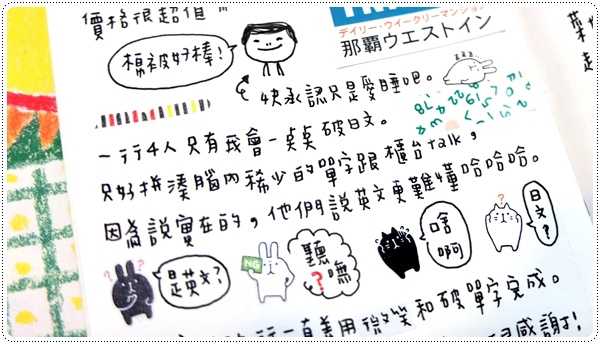 價格很超值
デイリー・ウイークリーマンション
那覇ウエストイン
棉被好棒!
快承認只是愛睡吧。
一行4人只有我會一點點破日文。
只好拼湊腦內稀少的單字跟櫃台talk,
因為說實在的,他們說英文更難懂哈哈哈。
是英文?
NG
聽嘸?
啥啊
日文?
一直善用微笑和破單字完成。
感謝!